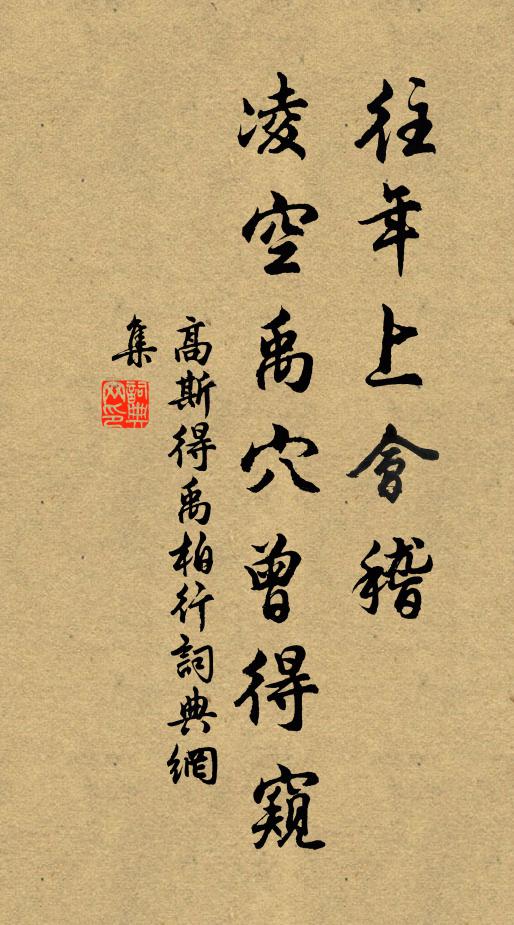 往年上會稽
凌空禹穴曾得窺
高斯得禹柏行詞典網
集
詞典
网印